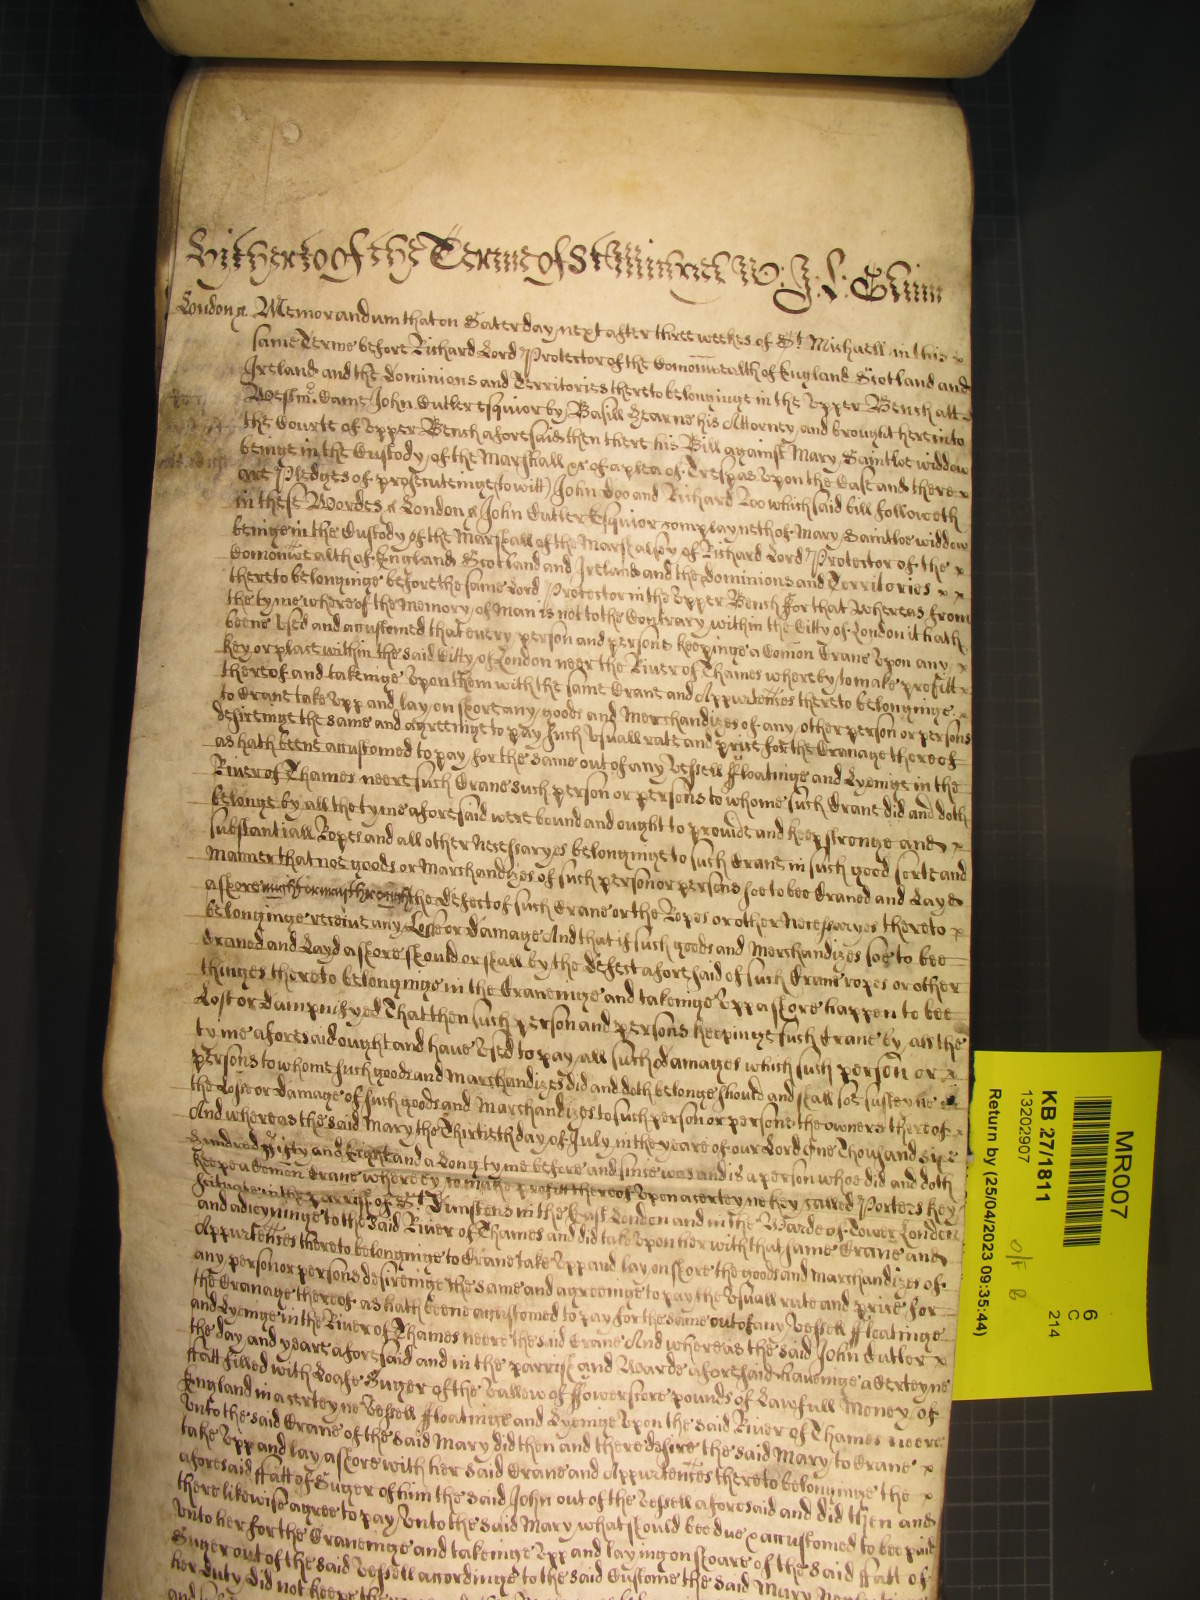 Hitherto of the Terme of St Michaell
London ss. Memorandum that on Saterday next after three weekes of St. Michaell in this x
same Terme before Richard Lord Protector of the Comonwealth of England Scotland and
Ireland and the Dominions and Territories thereto belonginge in the Upper Bench att
Westm. Came John Cutler Esquior by Basill Hearne his Attorney and brought here into
the Courte of Upper Bench aforesaid then there his Bill against Mary Saintloe widdow
beinge in the Custody of the Marshall &c of a plea of Trespas upon the Case and there x
are Pledges of prosecuteinge (to witt) John Doo and Richard Roo which said bill followeth
in these Wordes ss London ss John Cutler Esquior complayneth of Mary Saintloe widdow
beinge in the Custody of the Marshall of the Marshalsey of Richard Lord Protector of the x
Comonwealth of England Scotland and Ireland and the Dominions and Territories x x
thereto belonginge before the same Lord Protector in the Upper Bench For that Whereas from
the tyme whereof the Memory of Man is not to the Contrary within the Citty of London it hath
beene used and accustomed that every person and persons keepinge a Comon Crane upon any x
Key or place within the said Citty of London neer the River of Thames whereby to make profitt x
thereof and takeinge upon them with the same Crane and Appurtences thereto belonginge x
to Crane take upp and lay on shore any goods and Merchandizes of any other person or persons
desireinge the same and agreeinge to pay such usuall rate and price for the Cranage thereof
as hath beene accustomed to pay for the same out of any Vessell ffloatinge and Lyeinge in the
River of Thames neere such Crane such person or persons to whome such Crane did and doth
belonge by all the tyme aforesaid were bound and ought to provide and keep stronge and x
substantiall Ropes and all other Necessaryes belonginge to such Crane in such good sorte and
Manner that noe goods or Marchandizes of such person or persons soe to bee Craned and Layd
a shore might or may through the defect of such Crane or the Ropes or other Necessaryes thereto x
belonginge receive any Losse or damage And that if such goods and Merchandizes soe to bee
Craned and Layd a shore should or shall by the defect aforesaid of such Crane ropes or other
thinges thereto belonginge in the Craneinge and takeinge upp a shore happen to bee
Lost or Dampnifyed That then such person and persons keepinge such Crane by all the
tyme aforesaid ought and have used to pay all such damages which such person or x
persons to whome such goods and Marchandizes did and doth belonge should and shall soe susteyne
the Losse or damage of such goods and Marchandizes to such person or persons the owners thereof x
And whereas the said Mary the Thirtieth day of July in the yeare of our Lord One Thousand six
hundred Fifty and Eight and a Long tyme before and since was and is a person whoe did and doth
keepe a Comon Crane whereby to make profitt thereof upon a certeyne key called Porters Key
scituate in the parrish of St. Dunstons in the East London and in the Warde of Tower London
and adioyninge to the said River of Thames and did take upon her with that same Crane and
Appurtences thereto belonginge to Crane take upp and lay on shore the goods and marchandizes of
any person or persons desireinge the same and agreeinge to pay the usuall rate and price for
the Cranage thereof as hath beene accustomed to pay for the same out of any Vessell ffloatinge
and Lyeinge in the River of Thames neere the said Crane And whereas the said John Cutler x
the day and yeare aforesaid and in the parrish and Warde aforesaid haveinge a Certeyne
ffatt filled with Loafe Suger of the Vallew of ffowerscore pounds of Lawfull Money of
England in a certeyne Vessell ffloatinge and Lyeinge upon the said River of Thames neere
unto the said Crane of the said Mary did then and there desire the said Mary to Crane x
take upp and lay a shore with her said Crane and Appurtences thereto belonginge the x
aforesaid ffatt of Suger of him the said John out of the Vessell aforesaid and did then and
there likewise agree to pay unto the said Mary what should bee due & accustomed to bee paid
unto her for the Craneinge and takeinge upp and laying on shoare of the said ffatt of
Suger out of the said Vessell accordinge to the said Custome the said Mary
her duty did not keepe
MR007
KB 27/1811
13202907
Return by (25/04/2023 09:35:44)
6
C
214